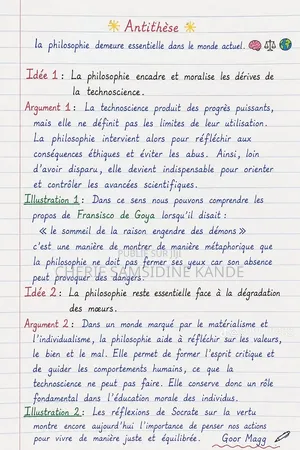 Antithèse
la philosophie demeure essentielle dans le monde actuel.
Idée 1 : La philosophie encadre et moralise les dérives de
la technoscience.
Argument 1 : La technoscience produit des progrès puissants,
mais elle ne définit pas les limites de leur utilisation.
La philosophie intervient alors pour réfléchir aux
conséquences éthiques et éviter les abus. Ainsi, loin
d'avoir disparu, elle devient indispensable pour orienter
et contrôler les avancées scientifiques.
Illustration 1 : Dans ce sens nous pouvons comprendre les
propos de Fransisco de Goya lorsqu'il disait :
« le sommeil de la raison engendre des démons »
c'est une manière de montrer de manière métaphorique que
la philosophie ne doit pas fermer ses yeux car son absence
peut provoquer des dangers.
CHERIF SAMSIDINE KANDE
Idée 2 : La philosophie reste essentielle face à la dégradation
des mœurs.
Argument 2 : Dans un monde marqué par le matérialisme et
l'individualisme, la philosophie aide à réfléchir sur les valeurs,
le bien et le mal. Elle permet de former l'esprit critique et
de guider les comportements humains, ce que la
technoscience ne peut pas faire. Elle conserve donc un rôle
fondamental dans l'éducation morale des individus.
Illustration 2 : Les réflexions de Socrate sur la vertu
montre encore aujourd'hui l'importance de penser nos actions
pour vivre de manière juste et équilibrée.
Goor Magg